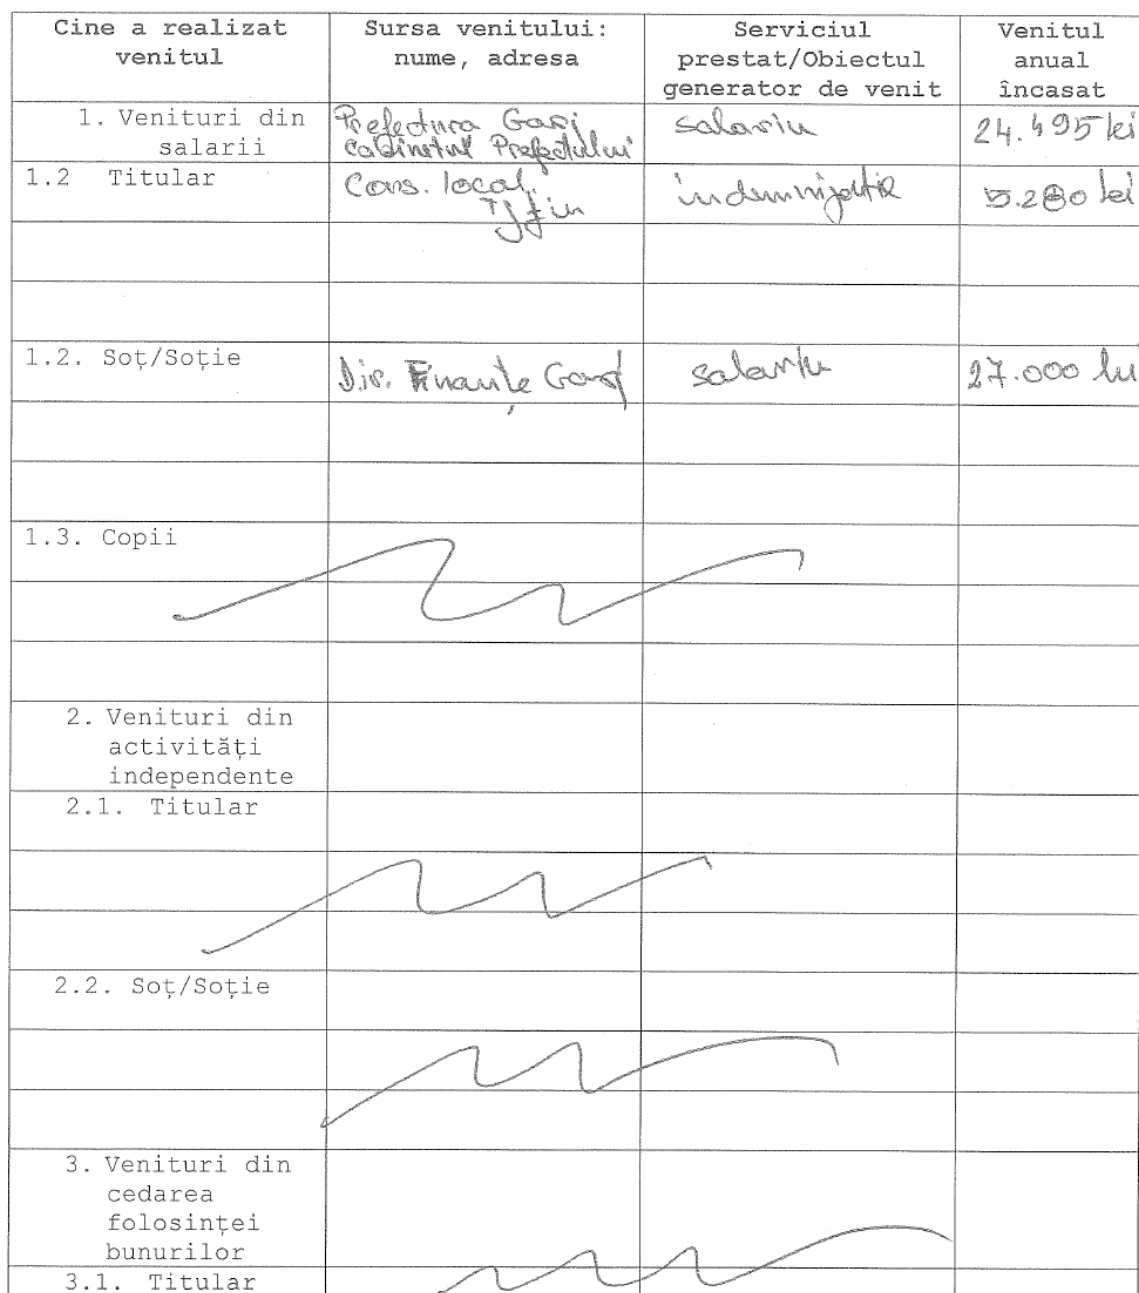 Cine a realizat venitul
Sursa venitului: nume, adresa
Serviciul prestat/Obiectul generator de venit
Venitul anual încasat
1. Venituri din salarii
Prefectura Gorj
Cabinetul Prefectului
salariu
24.495 lei
1.2 Titular
Cons. local
indemnizație
5.280 lei
1.2. Soț/Soție
Dir. Finanțe Gorj
salariu
27.000 lei
1.3. Copii
2. Venituri din
activități
independente
2.1. Titular
2.2. Soț/Soție
3. Venituri din
cedarea
folosinței
bunurilor
3.1. Titular